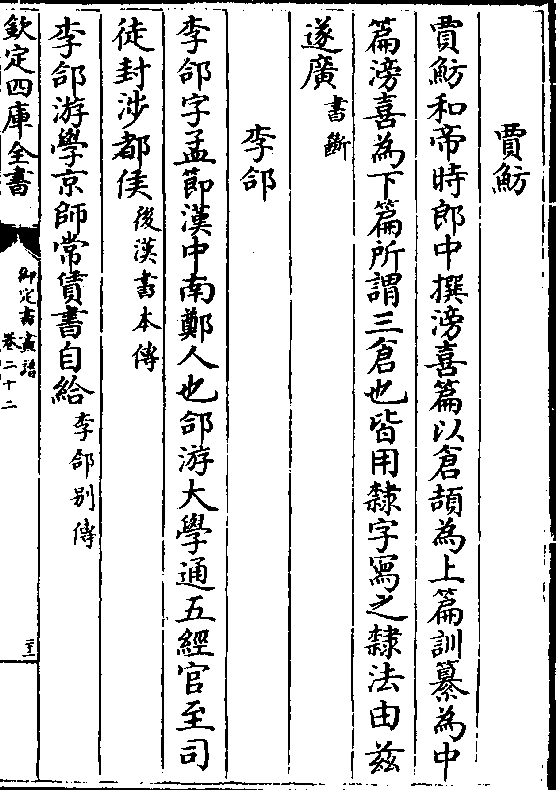 賈魴
賈魴和帝時郎中撰滂喜篇以倉頡為上篇訓纂為中
篇滂喜為下篇所謂三倉也皆用隸字寫之隸法由茲
遂廣書斷
李郃
李郃字孟節漢中南鄭人也郃游大學通五經官至司
徒封涉都侯後漢書本傳
李郃游學京師常賃書自給李郃別傳
欽定四庫全書
御定書畫譜
卷二十二